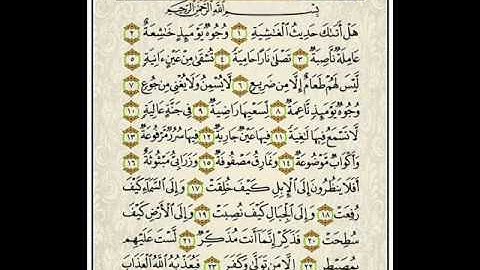 بِسْمِ اللَّهِ الرَّحْمَٰنِ الرَّحِيمِ
هَلْ أَتَىٰكَ حَدِيثُ الْغَٰشِيَةِ ١ وُجُوهٌ يَوْمَئِذٍ خَٰشِعَةٌ ٢
عَامِلَةٌ نَّاصِبَةٌ ٣ تَصْلَىٰ نَارًا حَامِيَةً ٤ تُسْقَىٰ مِنْ عَيْنٍ ءَانِيَةٍ ٥
لَّيْسَ لَهُمْ طَعَامٌ إِلَّا مِن ضَرِيعٍ ٦ لَّا يُسْمِنُ وَلَا يُغْنِي مِن جُوعٍ ٧
وُجُوهٌ يَوْمَئِذٍ نَّاعِمَةٌ ٨ لِّسَعْيِهَا رَاضِيَةٌ ٩ فِي جَنَّةٍ عَالِيَةٍ ١٠
لَّا تَسْمَعُ فِيهَا لَٰغِيَةً ١١ فِيهَا عَيْنٌ جَارِيَةٌ ١٢ فِيهَا سُرُرٌ مَّرْفُوعَةٌ ١٣
وَأَكْوَابٌ مَّوْضُوعَةٌ ١٤ وَنَمَارِقُ مَصْفُوفَةٌ ١٥ وَزَرَابِيُّ مَبْثُوثَةٌ ١٦
أَفَلَا يَنظُرُونَ إِلَى الْإِبِلِ كَيْفَ خُلِقَتْ ١٧ وَإِلَى السَّمَاءِ كَيْفَ
رُفِعَتْ ١٨ وَإِلَى الْجِبَالِ كَيْفَ نُصِبَتْ ١٩ وَإِلَى الْأَرْضِ كَيْفَ
سُطِحَتْ ٢٠ فَذَكِّرْ إِنَّمَا أَنتَ مُذَكِّرٌ ٢١ لَّسْتَ عَلَيْهِم
بِمُصَيْطِرٍ ٢٢ إِلَّا مَن تَوَلَّىٰ وَكَفَرَ ٢٣ فَيُعَذِّبُهُ اللَّهُ الْعَذَابَ